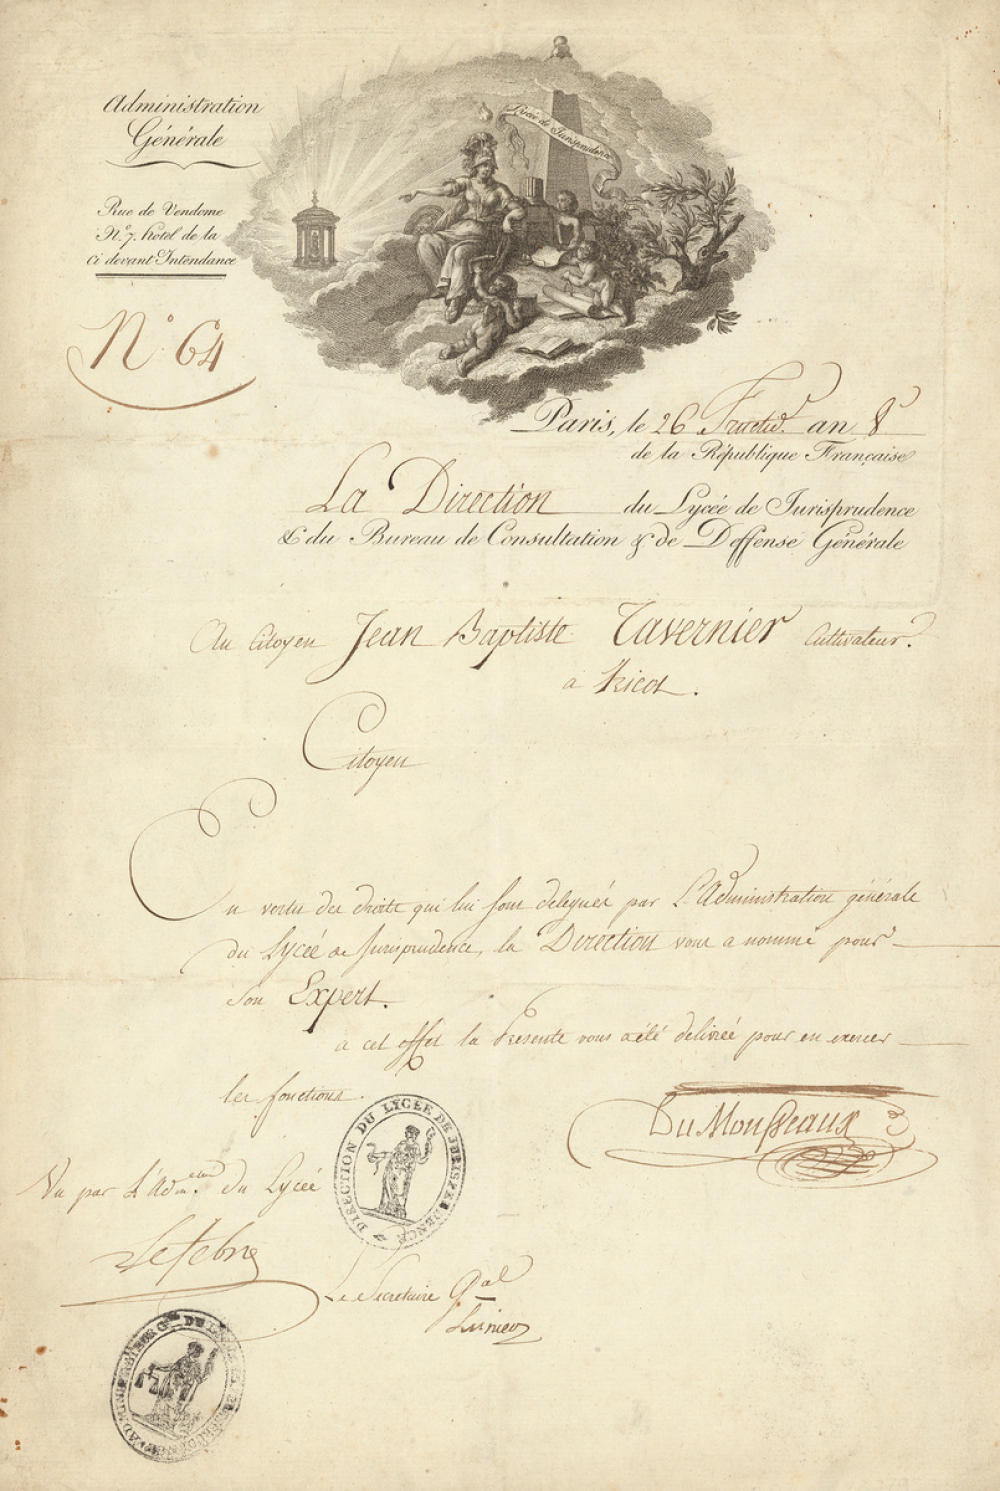 Administration
Générale
Rue de Vendome
N.º 7. hotel de la
Ci devant Intendance
Nº 64
Licée de Jurisprudence
Paris, le 26 Fructid.r an 8
de la République Française
La Direction du Lycée de Jurisprudence
& du Bureau de Consultation & de Deffense Générale
Au Citoyen Jean Baptiste Tavernier Cultivateur.
à Tricot.
Citoyen
En vertu des droits qui lui sont delegués par L'Administration générale
du Lycée de Jurisprudence, la Direction vous a nommé pour
son Expert.
a cet effet la Presente vous a été delivrée pour en exercer
les fonctions.
DuMousseaux
DIRECTION DU LYCÉE DE JURISPRUDENCE
Vu par L'Adm.on du Lycée
Lefebre
Le Secretaire Gal